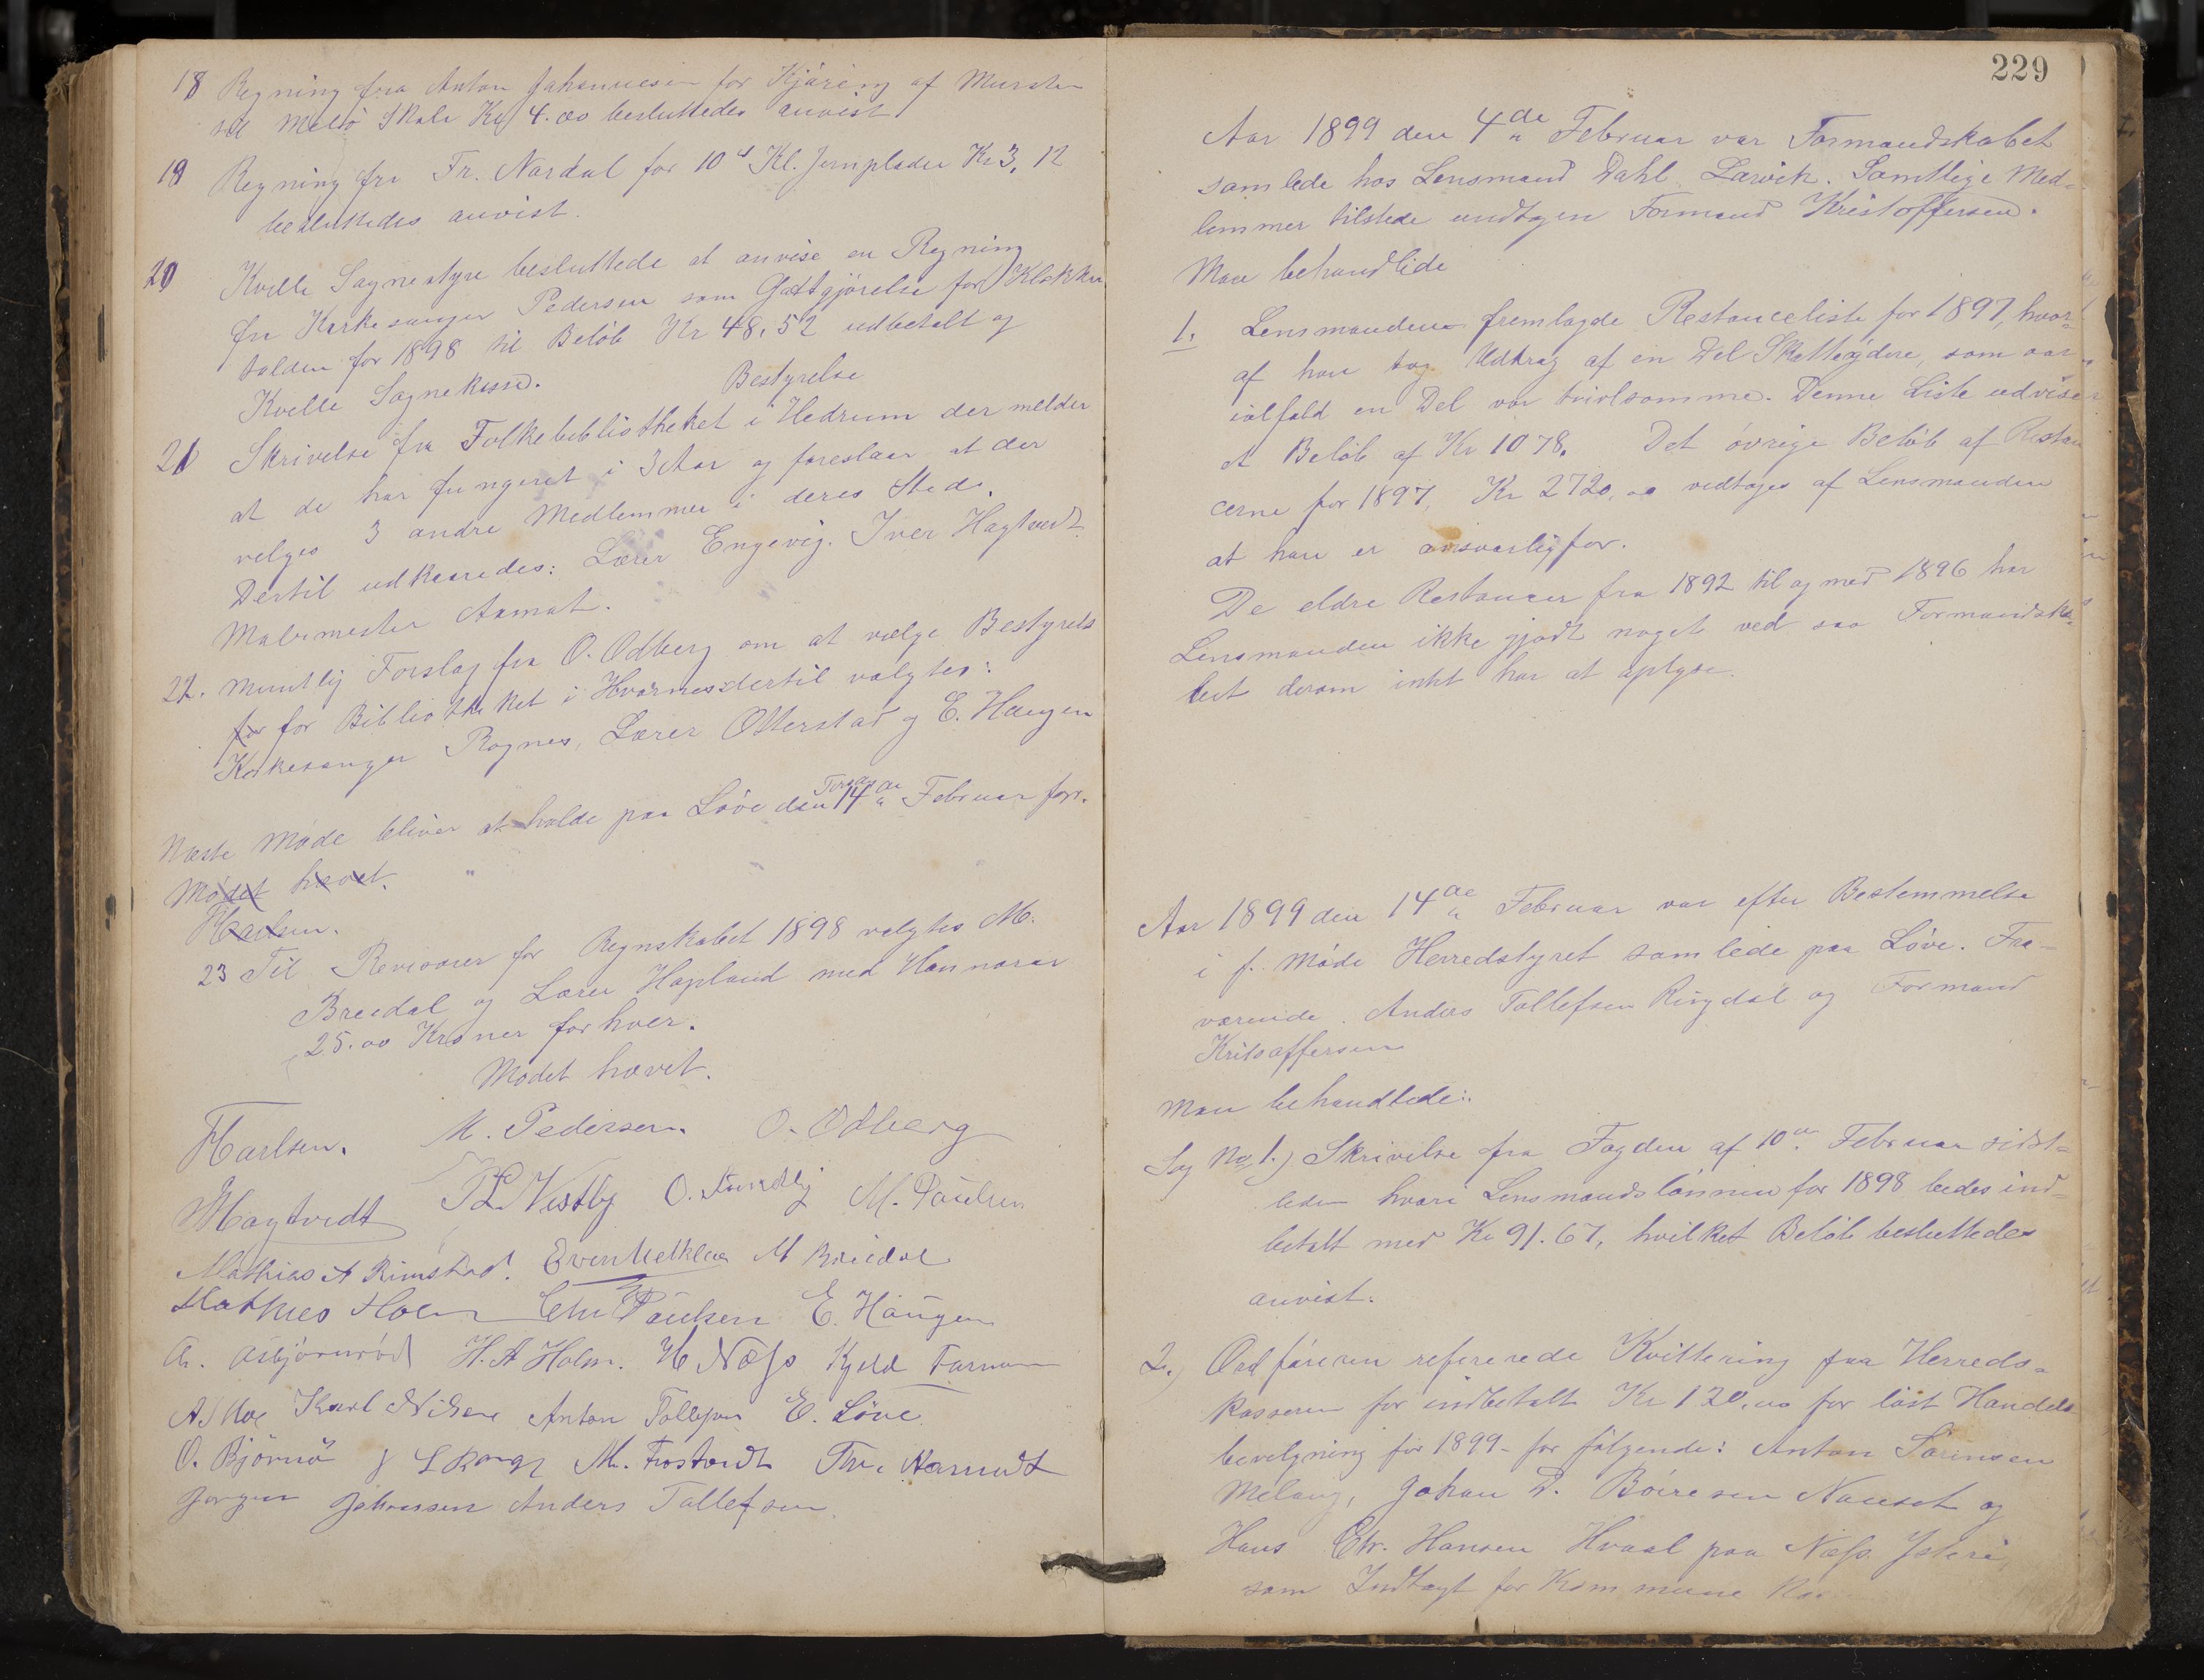 18 Regning fra Anton Johannesen for Kjøring af Mursten
til Melø Skole Kr 4.00 besluttedes anvist
19 Regning fra Fr. Nordal for 10 Kl. Jernplader Kr 3,12
besluttedes anvist.
20 Kvelle Sognestyre besluttede at anvise en Regning
fra Kirkesanger Pedersen som Godtgjørelse for Klokker
tolden for 1898 til Beløb Kr 48,52 udbetalt af
Kvelle Sognekasse.
Bestyrelse
21 Skrivelse fra Folkebibliotheket i Hedrum der melder
at de har fungeret i 3 Aar og foreslaar at der
velges 3 andre Medlemmer i deres Sted.
Dertil udkaaredes: Lærer Engevig. Iver Hagtvedt
Malermester Aamot.
22. Mundtlig Forslag fra O. Odberg om at vælge Bestyrels
for for Bibliotheket i Hvarnes dertil valgtes:
Kirkesanger Rognes, Lærer Otterstad og E. Haugen
Næste Møde bliver at holde paa Løve den Torsdag 14de Februar førs.
Mødet hævet.
Karlsen.
23 Til Revisorer for Regnskabet 1898 valgtes M.
Breidal og Lærer Hapland med Honnorar
25.00 Kroner for hver.
Mødet hævet.
Karlsen. M. Pedersen. O. Odberg
Hagtvedt P.L. Vestby O. M. Paulsen
Mathias A Rimstad. Even M Breidal
Mathies Holm Chr Paulsen E. Haugen
A. Asbjørnrød H. A Holm. H Næss Kjeld Farmen
A. Moe Karl Nilsen Anton Tollefsen E. Løve
O. Bjørnø M. Trostvedt
Jørgen Johansen Anders Tollefsen
229
Aar 1899 den 4de Februar var Formandskabet
samlede hos Lensmand Dahl Larvik. Samtlige Med-
lemmer tilstede undtagen Formand Kristoffersen.
Man behandlede
1. Lensmanden fremlagde Restanceliste for 1897, hvor-
af han tog Udtrag af en Del Skatteydere, som var
ialfald en Del var tvivlsomme. Denne Liste udviser
et Beløb af Kr 1078. Det øvrige Beløb af Restan
cerne for 1897, Kr 2720,00 vedtoges af Lensmanden
at han er ansvarlig for.
De eldre Restancer fra 1892 til og med 1896 har
Lensmanden ikke gjort noget ved saa Formandska-
bet derom intet har at oplyse.
Aar 1899 den 14de Februar var efter Bestemmelse
i f. Møde Herredstyret samlede paa Løve. Fra-
værende. Anders Tollefsen Ringdal og Formand
Kritsoffersen
Man behandlede:
Sag No 1.) Skrivelse fra Fogden af 10de Februar sidst-
leden hvori Lensmandslønnen for 1898 bedes ind-
betalt med Kr 91.67, hvilket Beløb besluttedes
anvist.
2.) Ordføreren refererede Kvittering fra Herreds-
kasseren for indbetalt Kr 120,00 for løst Handels
bevilgning for 1899 for følgende: Anton Sørensen
Melaug, Johan D. Bøiresen Nauset og
Hans Chr. Hansen Hvaal paa Næss Ysteri,
som Indtægt for Kommune